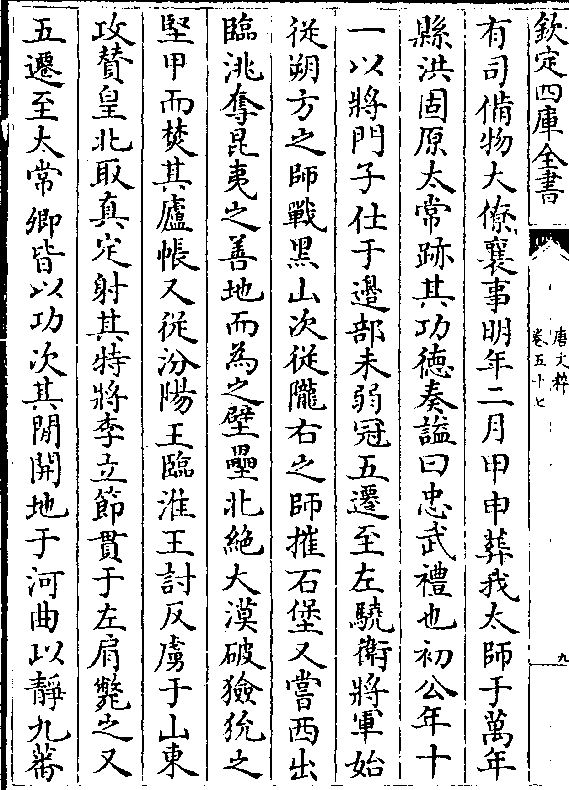 欽定四庫全書
唐文粹
卷五十七
九
有司備物大僚襄事明年二月甲申葬我太師于萬年
縣洪固原太常跡其功德奏諡曰忠武禮也初公年十
一以將門子仕于邊部未弱冠五遷至左驍衛將軍始
從朔方之師戰黑山次從隴右之師摧石堡又嘗西出
臨洮奪昆夷之善地而為之壁壘北絶大漠破獫狁之
堅甲而焚其廬帳又從汾陽王臨淮王討反虜于山東
攻賛皇北取真定射其特將李立節貫于左肩斃之又
五遷至太常卿皆以功次其閒開地于河曲以靜九蕃